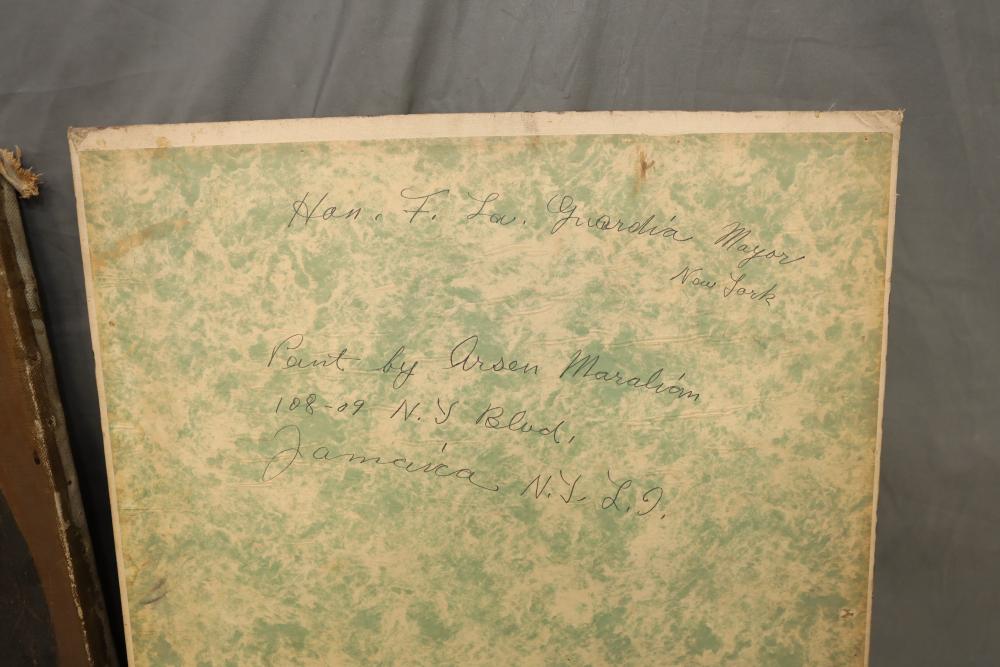 Hon. F. La. Guardia Mayor
New York
Paint by Arsen Maralian
108-09 N.Y Blvd,
Jamaica N.Y. L.I.